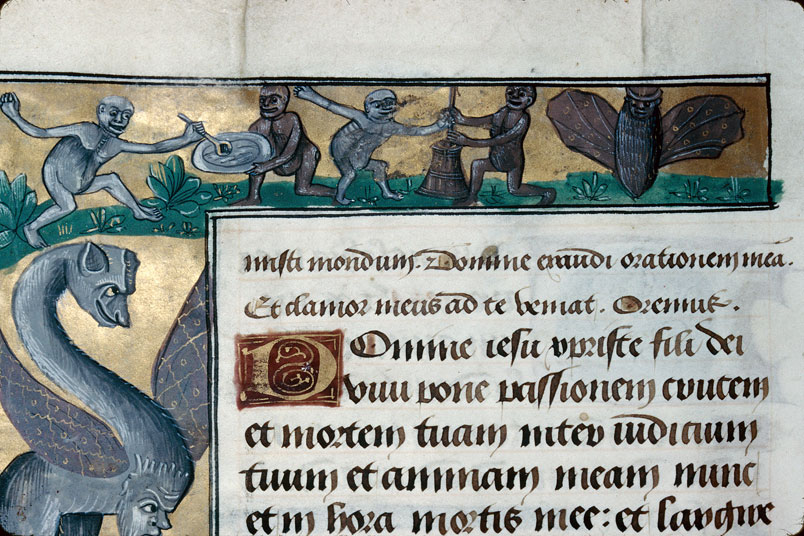 misti mondum. Domine exaudi orationem mea.
Et clamor meus ad te veniat. Oremus.
Domine iesu xpriste fili dei
vivi pone passionem crucem
et mortem tuam inter iudicium
tuum et animam meam nunc
et in hora mortis mee: et largire